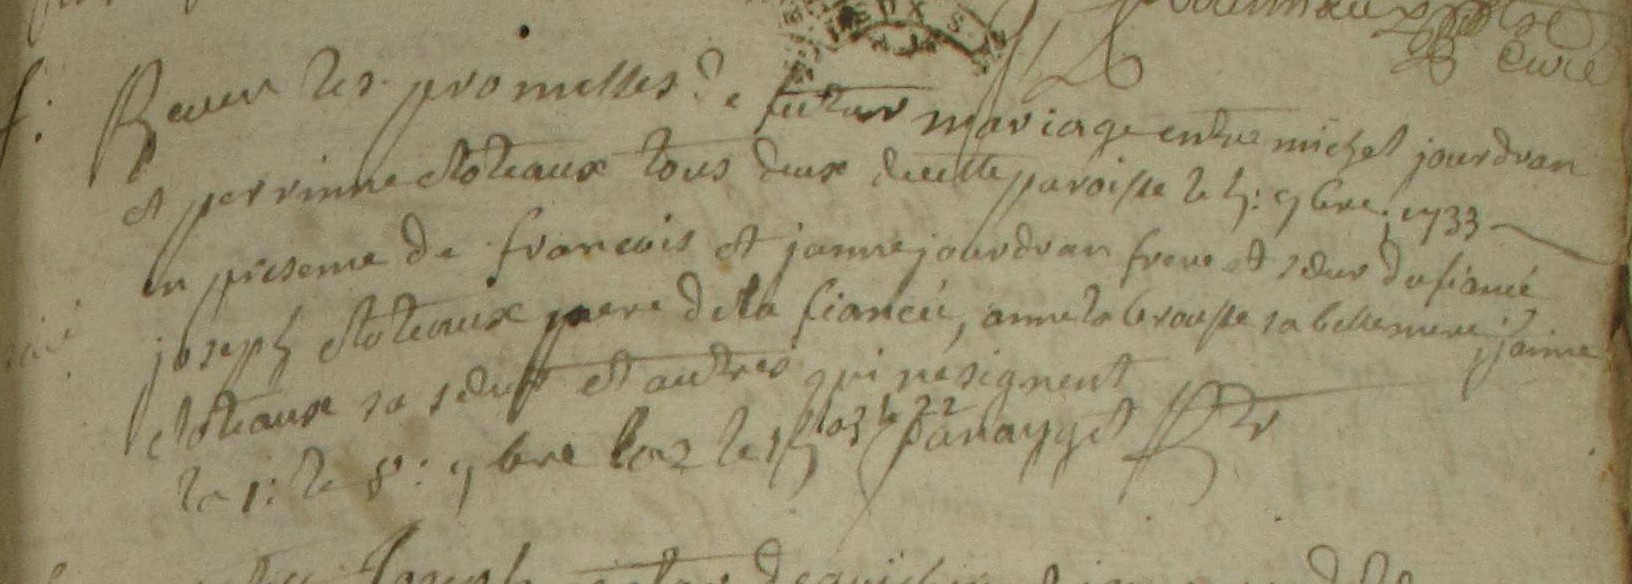 curé
f. Reçeu les promesses de futur mariage entre michel jourdran
et perrinne cloteaux tous deux de cette paroisse le 5: 9bre: 1733
en presence de francois et janne jourdran frere et sœur du fiancé
joseph cloteaux pere de la fiancéé, anne la brousse sa belle mere, janne
cloteaux sa sœur et autres qui ne signent
la 1: le 8: 9bre la 2 le 15 la 3 le 22